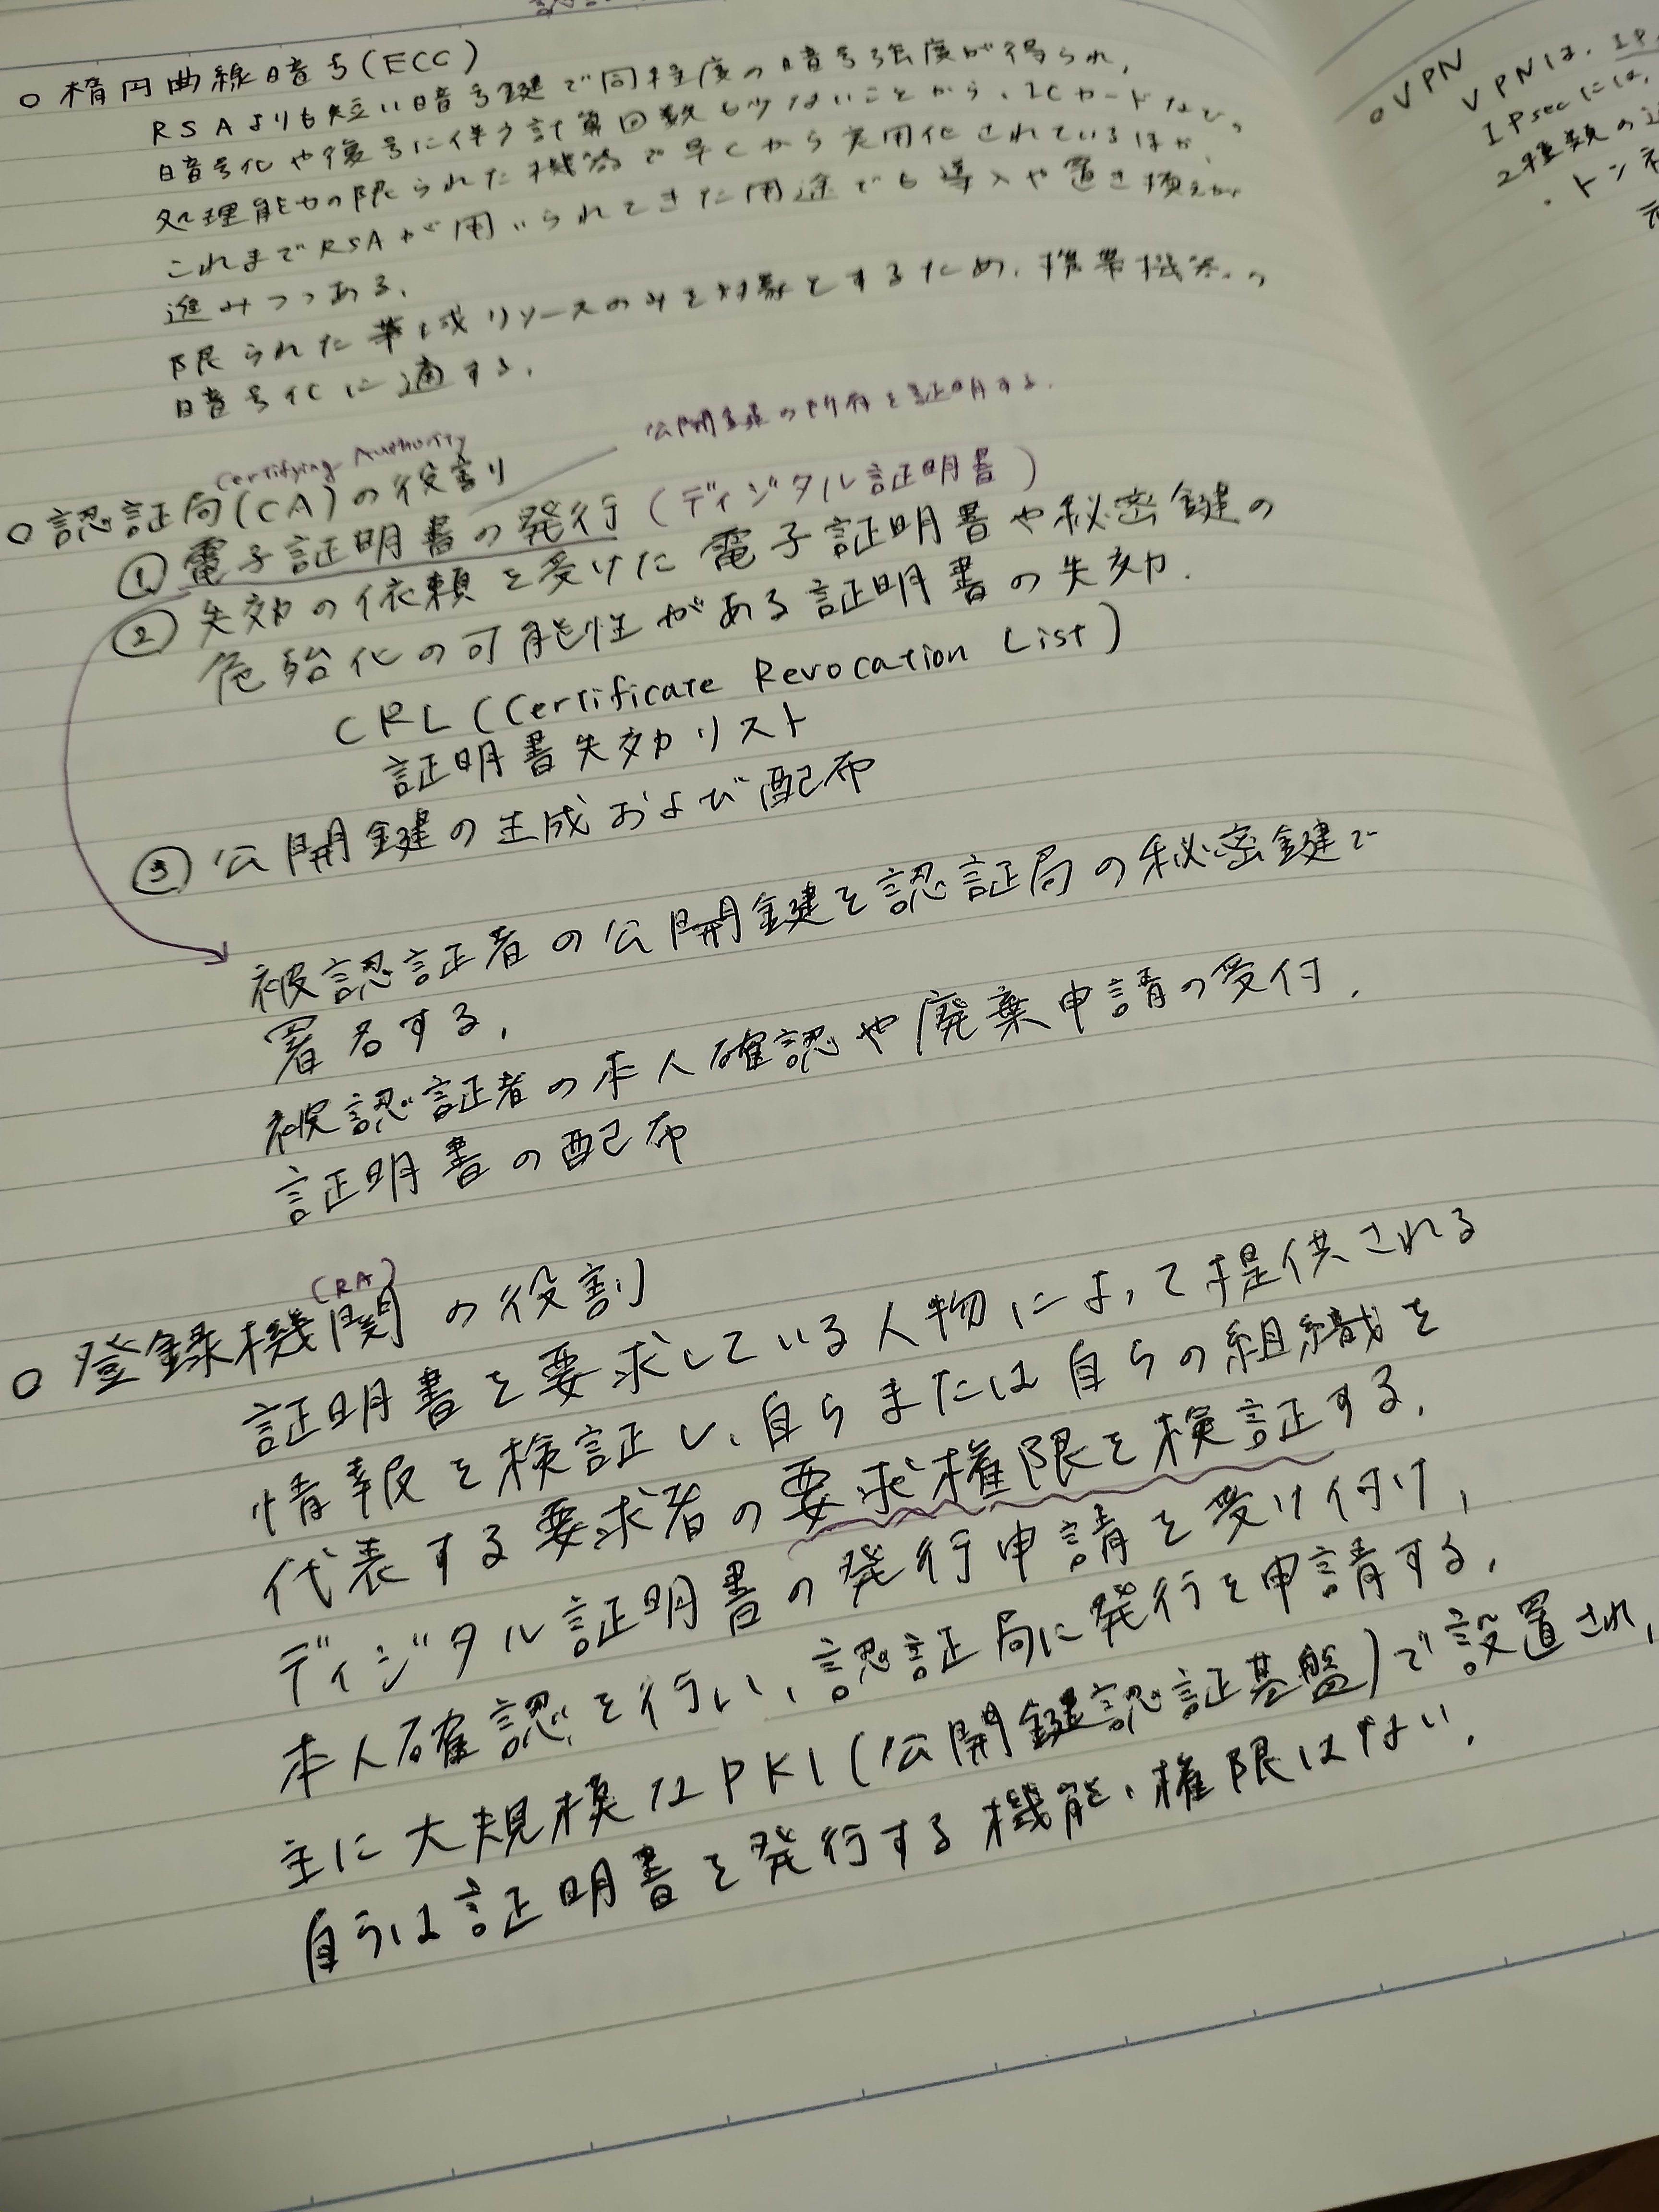 ○ 楕円曲線暗号(ECC)
RSAよりも短い暗号鍵で同程度の暗号強度が得られ,
暗号化や復号に伴う計算回数も少ないことから、ICカードなどの
処理能力の限られた機器で早くから実用化されているほか,
これまでRSAが用いられてきた用途でも導入や置き換えが
進みつつある,
限られた帯域リソースのみを対象とするため,携帯機器の
暗号化に適する,
公開鍵の所有を証明する.
Certifying Authority
○ 認証局(CA)の役割り
① 電子証明書の発行(ディジタル証明書)
② 失効の依頼を受けた電子証明書や秘密鍵の
危殆化の可能性がある証明書の失効.
CRL(Certificate Revocation List)
証明書失効リスト
③ 公開鍵の生成および配布
被認証者の公開鍵を認証局の秘密鍵で
署名する,
被認証者の本人確認や廃棄申請の受付,
証明書の配布
(RA)
○ 登録機関の役割
証明書を要求している人物によって提供される
情報を検証し、自らまたは自らの組織を
代表する要求者の要求権限を検証する,
ディジタル証明書の発行申請を受け付け,
本人確認を行い、認証局に発行を申請する,
主に大規模なPKI(公開鍵認証基盤)で設置され,
自らは証明書を発行する機能、権限はない,
○VPN
VPNは、IP
IPsecには,
2種類の
・トンネ